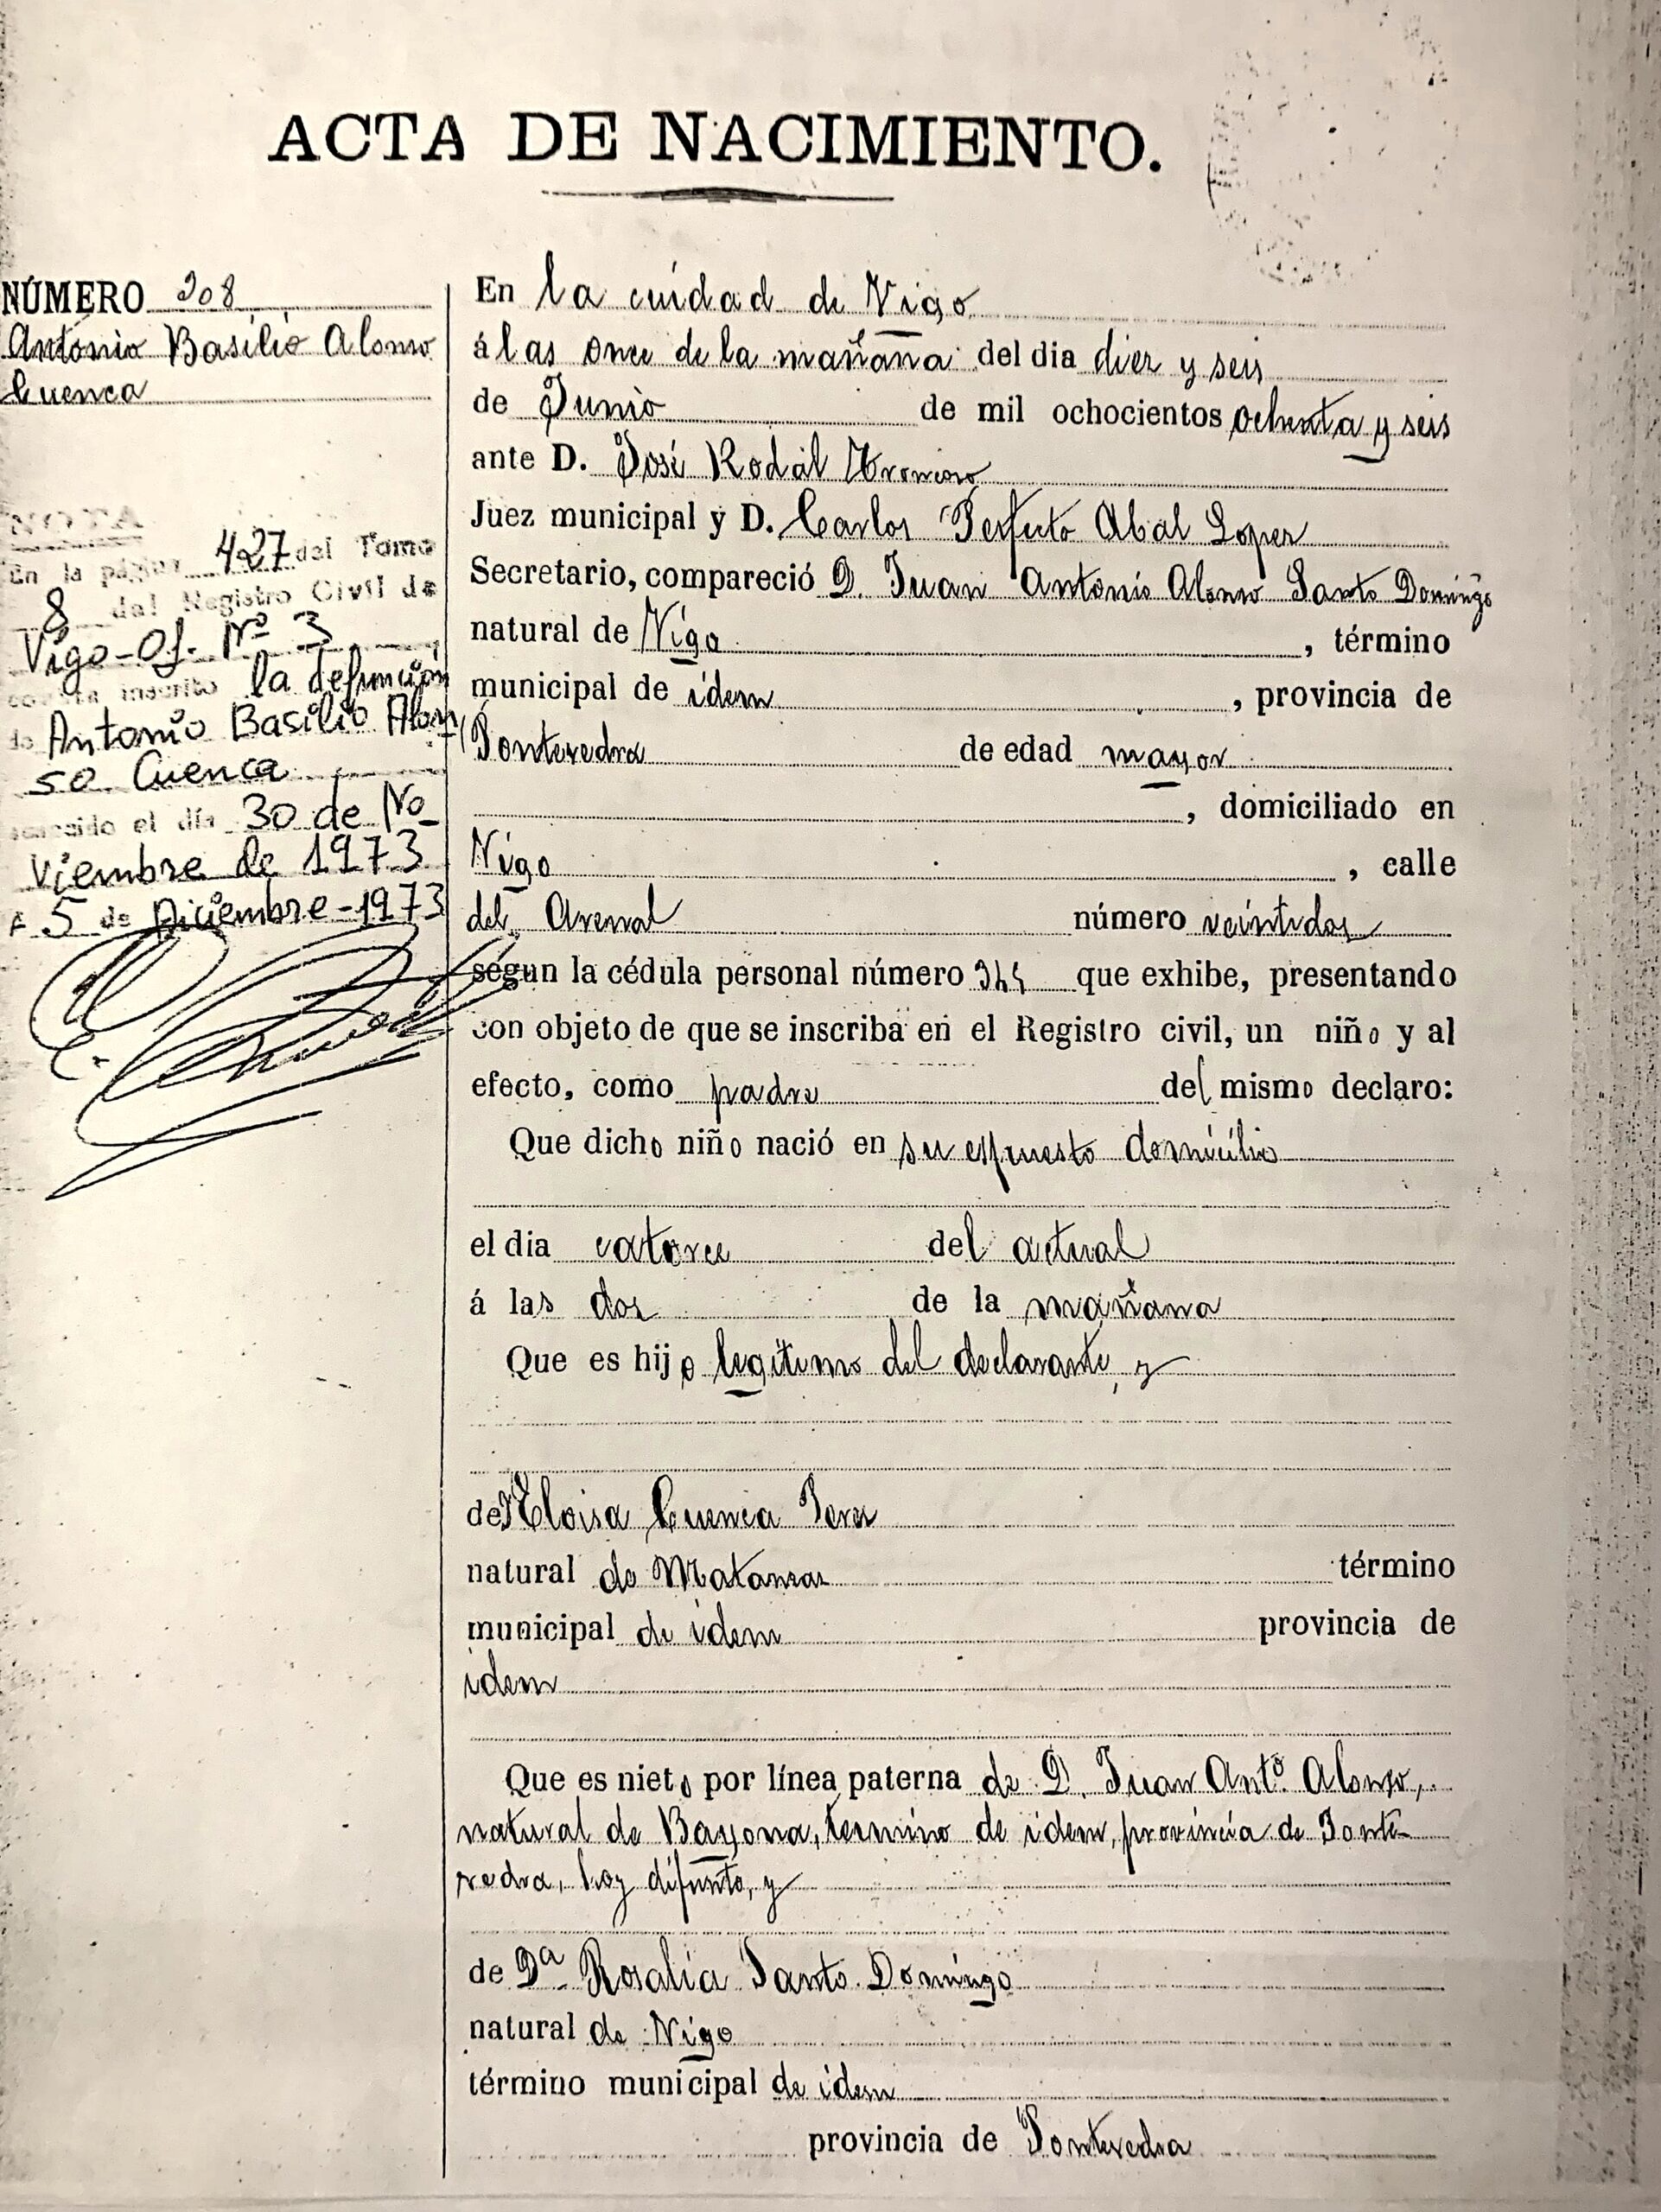 ACTA DE NACIMIENTO.
NÚMERO 208
Antonio Basilio Alonso
Cuenca
NOTA
En la página 427 del Tomo
8 del Registro Civil de
Vigo-Of. Nº 3
consta inscrito la defunción
de Antonio Basilio Alon
so Cuenca
acaecido el día 30 de No
viembre de 1973
A 5 de Diciembre-1973
En la cuidad de Vigo
á las once de la mañana del dia diez y seis
de Junio de mil ochocientos ochenta y seis
ante D. José Rodal
Juez municipal y D. Carlos Perfecto Abal Lopez
Secretario, compareció D. Juan Antonio Alonso Santo Domingo
natural de Vigo, término
municipal de idem, provincia de
Pontevedra de edad mayor
, domiciliado en
Vigo, calle
del Arenal número veintidos
segun la cédula personal número que exhibe, presentando
con objeto de que se inscriba en el Registro civil, un niño y al
efecto, como padre del mismo declaro:
Que dicho niño nació en su espuesto domicilio
el dia catorce del actual
á las dos de la mañana
Que es hijo legitimo del declarante, y
de Eloisa Cuenca Perez
natural de Matanzas término
municipal de idem provincia de
idem
Que es nieto por línea paterna de D. Juan Antº. Alonso,
natural de Bayona, termino de idem, provincia de Ponte-
vedra, hoy difunto, y
de Dª Rosalía Santo Domingo
natural de Vigo
término municipal de idem
provincia de Pontevedra